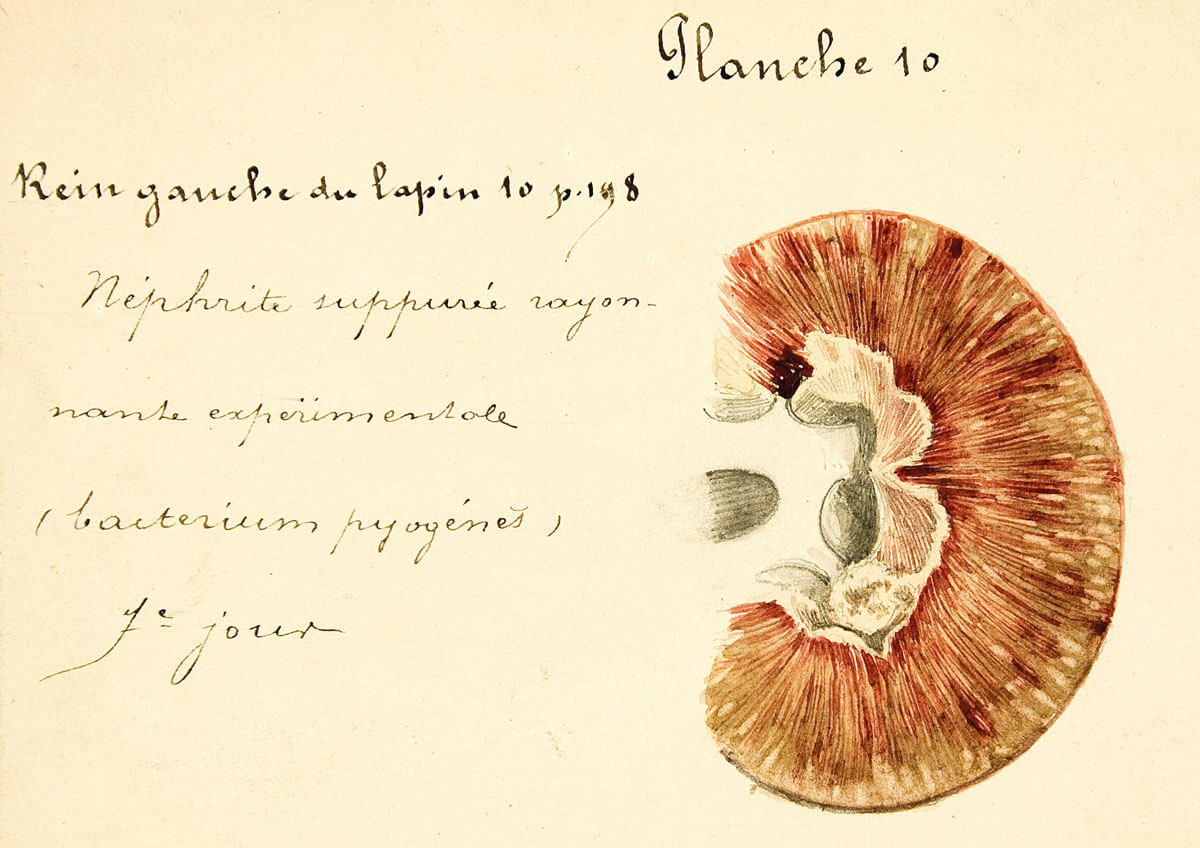 Planche 10
Rein gauche du lapin 10 p. 198
Néphrite suppurée rayon-
nante expérimentale
(bacterium pyogénes)
7e jour